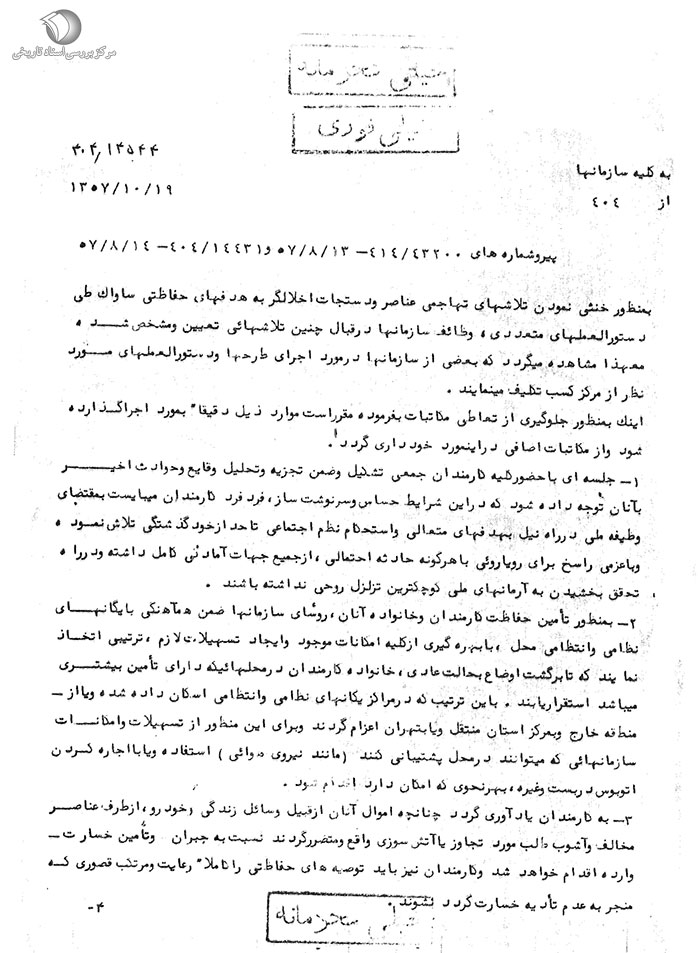 مرکز بررسی اسناد تاریخی
خیلی محرمانه
خیلی فوری
۴۰۴/۱۴۵۴۴
۱۳۵۷/۱۰/۱۹
به کلیه سازمانها
از ۴۰۴
پیروشماره های ۴۱۴/۴۳۲۰۰ – ۵۷/۸/۱۳ و ۴۰۴/۱۴۴۳۱ – ۵۷/۸/۱۴
بمنظور خنثی نمودن تلاشهای تهاجمی عناصر ودستجات اخلالگر به هدفهای حفاظتی ساواک طی
دستورالعملهای متعددی، وظائف سازمانها درقبال چنین تلاشهائی تعیین ومشخص شده
معهذا مشاهده میگردد که بعضی از سازمانها درمورد اجرای طرحها ودستورالعملهای مورد
نظر از مرکز کسب تکلیف مینمایند .
اینک بمنظور جلوگیری از تعاطی مکاتبات بفرموده مقرراست موارد ذیل دقیقا" بمورد اجراگذارده
شود واز مکاتبات اضافی دراینمورد خودداری گردد .
۱– جلسه ای باحضورکلیه کارمندان جمعی تشکیل وضمن تجزیه وتحلیل وقایع وحوادث اخیر
بآنان توجه داده شود که دراین شرایط حساس وسرنوشت ساز، فرد فرد کارمندان میبایست بمقتضای
وظیفه ملی درراه نیل بهدفهای متعالی واستحکام نظم اجتماعی تاحد ازخودگذشتگی تلاش نموده
وباعزمی راسخ برای رویاروئی باهرگونه حادثه احتمالی ، ازجمیع جهات آمادگی کامل داشته ودرراه
تحقق بخشیدن به آرمانهای ملی کوچکترین تزلزل روحی نداشته باشند .
۲– بمنظور تأمین حفاظت کارمندان وخانواده آنان ، روسای سازمانها ضمن هم‌آهنگی بایگانهای
نظامی وانتظامی محل ، بابهره گیری ازکلیه امکانات موجود وایجاد تسهیلات لازم ، ترتیبی اتخاذ
نمایند که تابرگشت اوضاع بحالت عادی ، خانواده کارمندان درمحلهائیکه دارای تأمین بیشتری
میباشد استقراریابند . باین ترتیب که درمراکز یکانهای نظامی وانتظامی اسکان داده شده ویااز–
منطقه خارج وبمرکز استان منتقل ویابتهران اعزام گردند وبرای این منظور از تسهیلات وامکانات
سازمانهائی که میتوانند درمحل پشتیبانی کنند (مانند نیروی هوائی ) استفاده ویابااجاره کردن
اتوبوس دربست وغیره، بهرنحوی که امکان دارد اقدام شود .
۳– به کارمندان یادآوری گردد چنانچه اموال آنان ازقبیل وسائل زندگی (خودرو، ازطرف عناصر
مخالف وآشوب طلب مورد تجاوز یاآتش سوزی واقع ومتضررگردند نسبت به جبران وتأمین خسارت–
وارده اقدام خواهد شد وکارمندان نیز باید توصیه های حفاظتی راکاملا" رعایت ومرتکب قصوری که
منجر به عدم تأدیه خسارت گردد نشوند .
۴–
خیلی محرمانه